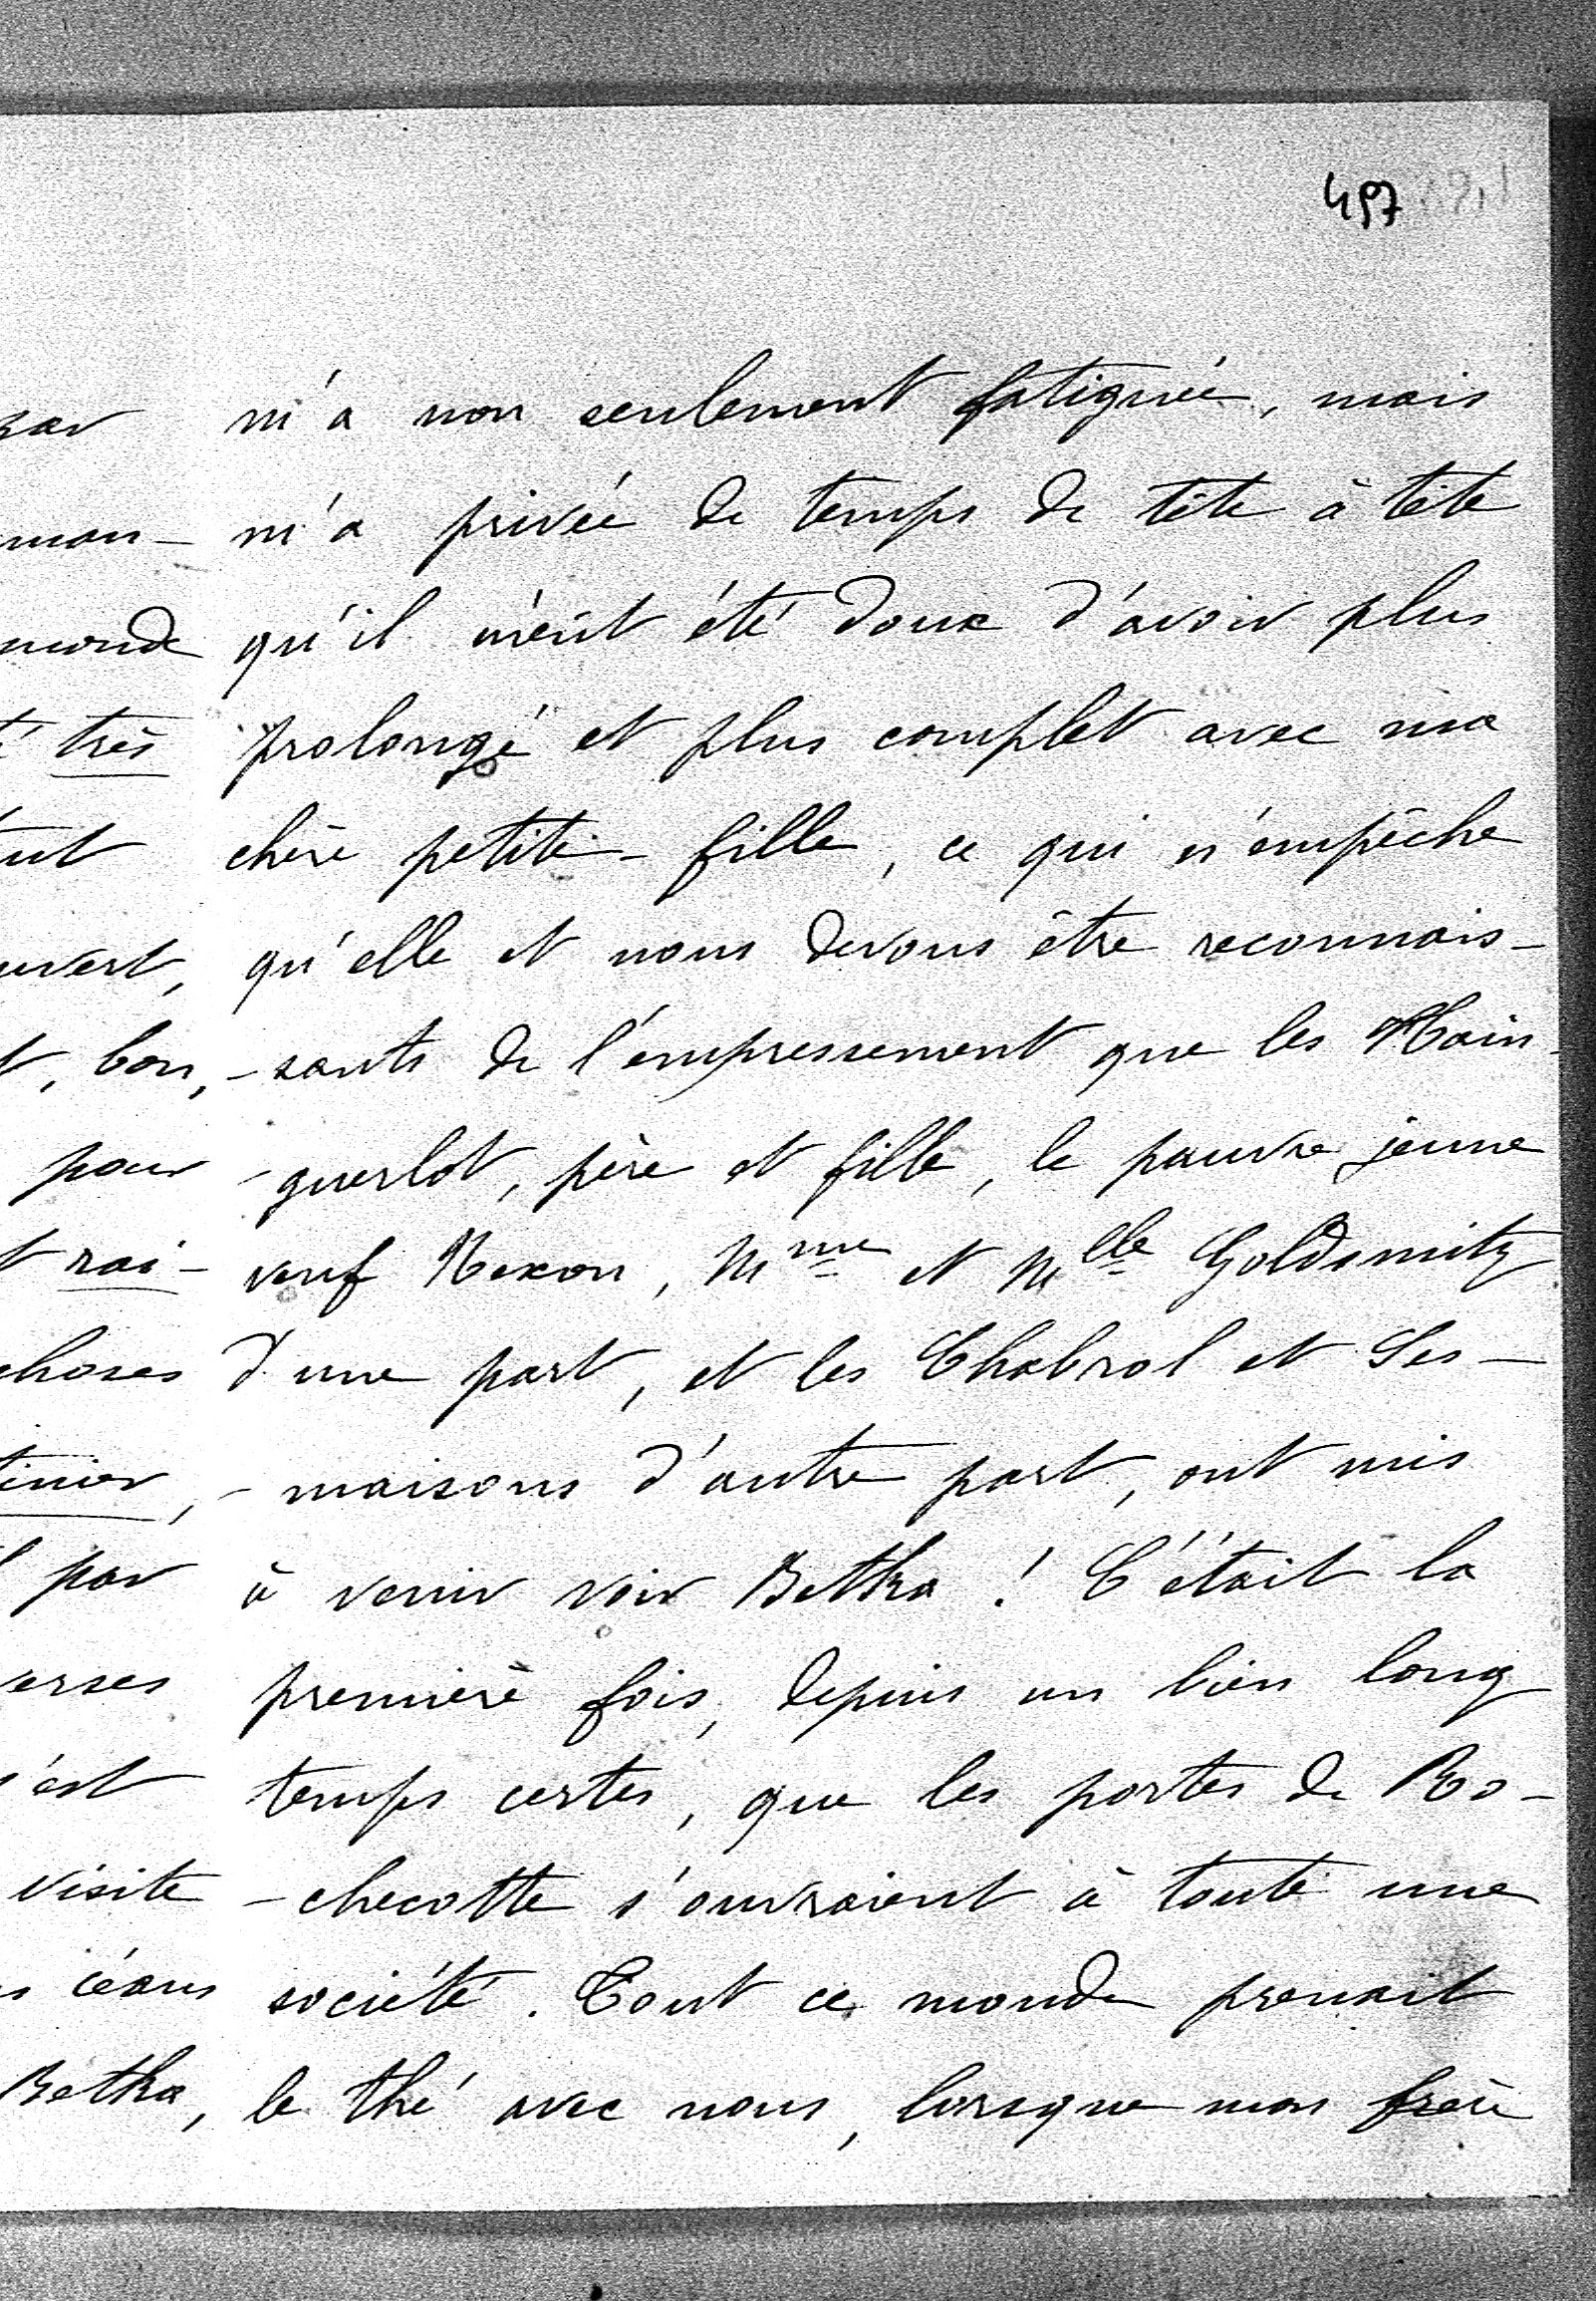 497
m'a non seulement fatiguée, mais
m'a privée de temps de tête à tête
qu'il m'eût été doux d'avoir plus
prolongé et plus complet avec ma
chère petite-fille, ce qui n'empêche
qu'elle et nous devons être reconnais-
-sants de l'empressement que les Hain-
-guerlot, père et fille, le pauvre jeune
veuf Nexon, Mme et Mlle Goldsmitz
d'une part, et les Chabrol et Les-
-maisons d'autre part, ont mis
à venir voir Betka ! C'était la
première fois, depuis un bien long
temps certes, que les portes de Ro-
-checotte s'ouvraient à toute une
société. Tout ce monde prenait
le thé avec nous, lorsque mon frère
mon-
monde
très
uvert,
, bon,
pour
rai-
choses
tinier,
par
erses
'est
visite
céans
Betka,